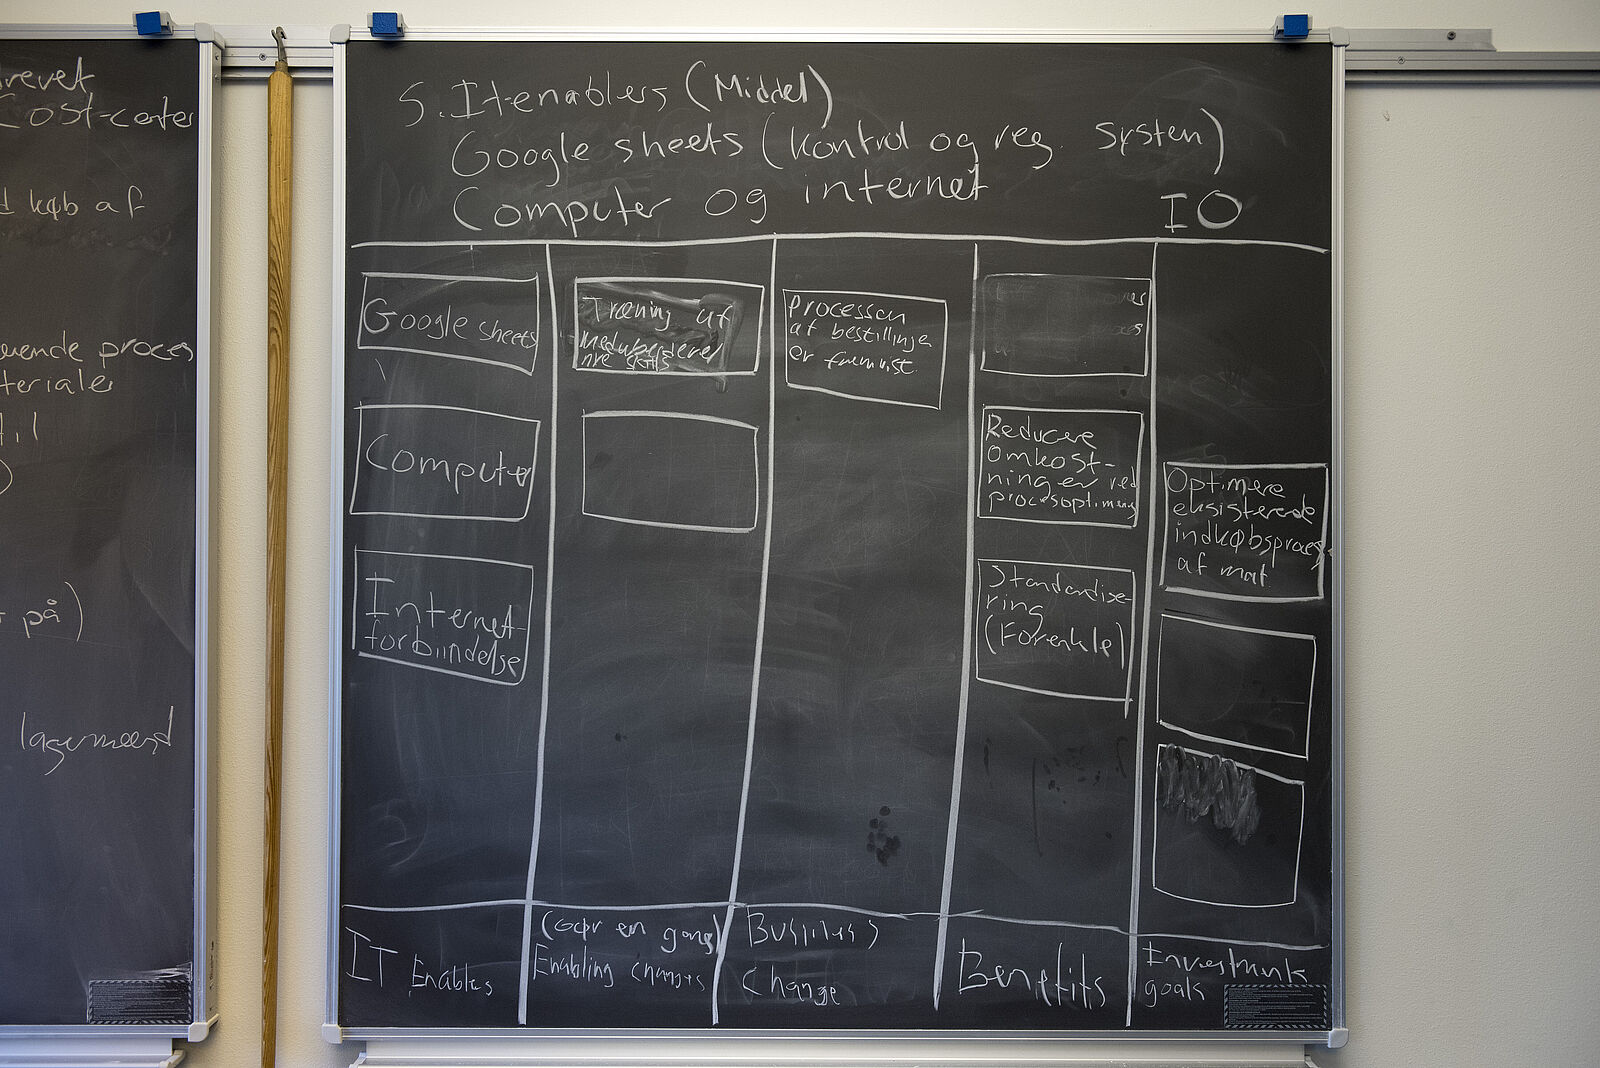 revet
Cost-center
d køb af
ende proces
teriale
til
på)
lagermeerd
5. It-enablers (Middel)
Google sheets (kontrol og reg. system)
Computer og internet
IO
Google sheets
Computer
Internet-
forbindelse
Træning af
medarbejdere
nye skills
Processen
af bestillinge
er
Reducere
omkost-
ninger ved
procesoptimering
Standardise-
ring
(Forenkle)
Optimere
eksisterende
indkøbsproces
af mat.
IT Enables
(Gør en gang)
Enabling changes
Business
Change
Benefits
Investments
goals